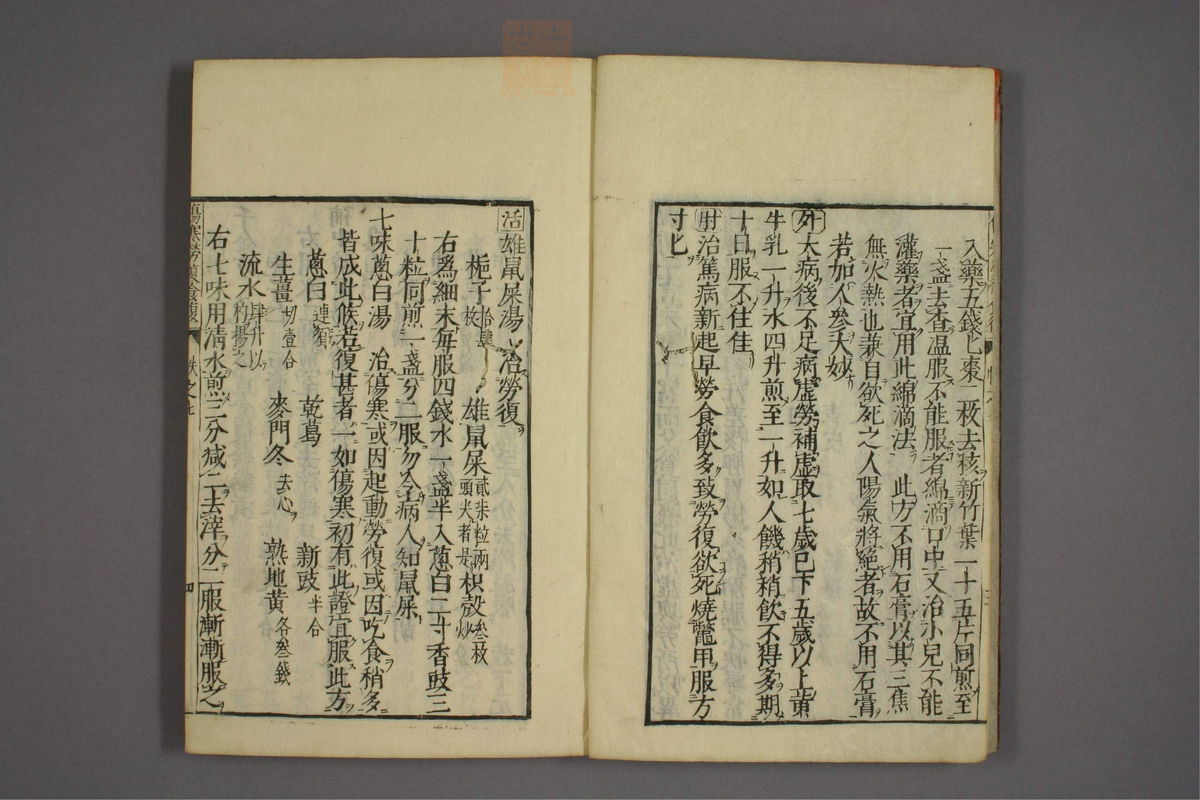 入藥五錢匕棗二枚去核新竹葉一十五片同煎至
一盞去查溫服不能服者綿滴口中又治小兒不能
灌藥者宜用此綿滴法 此方不用石膏以其三焦
無火熱也兼自欲死之人陽氣將絕者故不用石膏
若加人參大妙
外大病後不足病虛勞補虛取七歲已下五歲以上黃
牛乳一升水四升煎至一升如人饑稍稍飲不得多期
十日服不住佳
肘治篤病新起早勞食飲多致勞復欲死燒鼈甲服方
寸匕
活雄鼠屎湯 治勞復
梔子拾肆枚 雄鼠屎貳柒粒兩頭尖者是 枳殼叁枚炒
右爲細末每服四錢水一盞半入蔥白二寸香豉三
十粒同煎一盞分二服勿令病人知鼠屎
七味蔥白湯 治傷寒或因起動勞復或因吃食稍多
皆成此候若復甚者一如傷寒初有此證宜服此方
蔥白連鬚 乾葛 新豉半合
生薑切壹合 麥門冬去心 熟地黃各叁錢
流水肆升以杓揚之
右七味用淸水煎三分減二去滓分二服漸漸服之